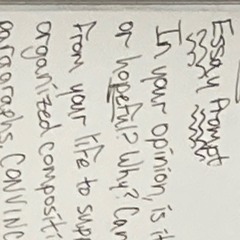 Essay Prompt
In your opinion, is it
or hopeful? Why? Can
from your life to supp
organized compositi
paragraphs. Convinc